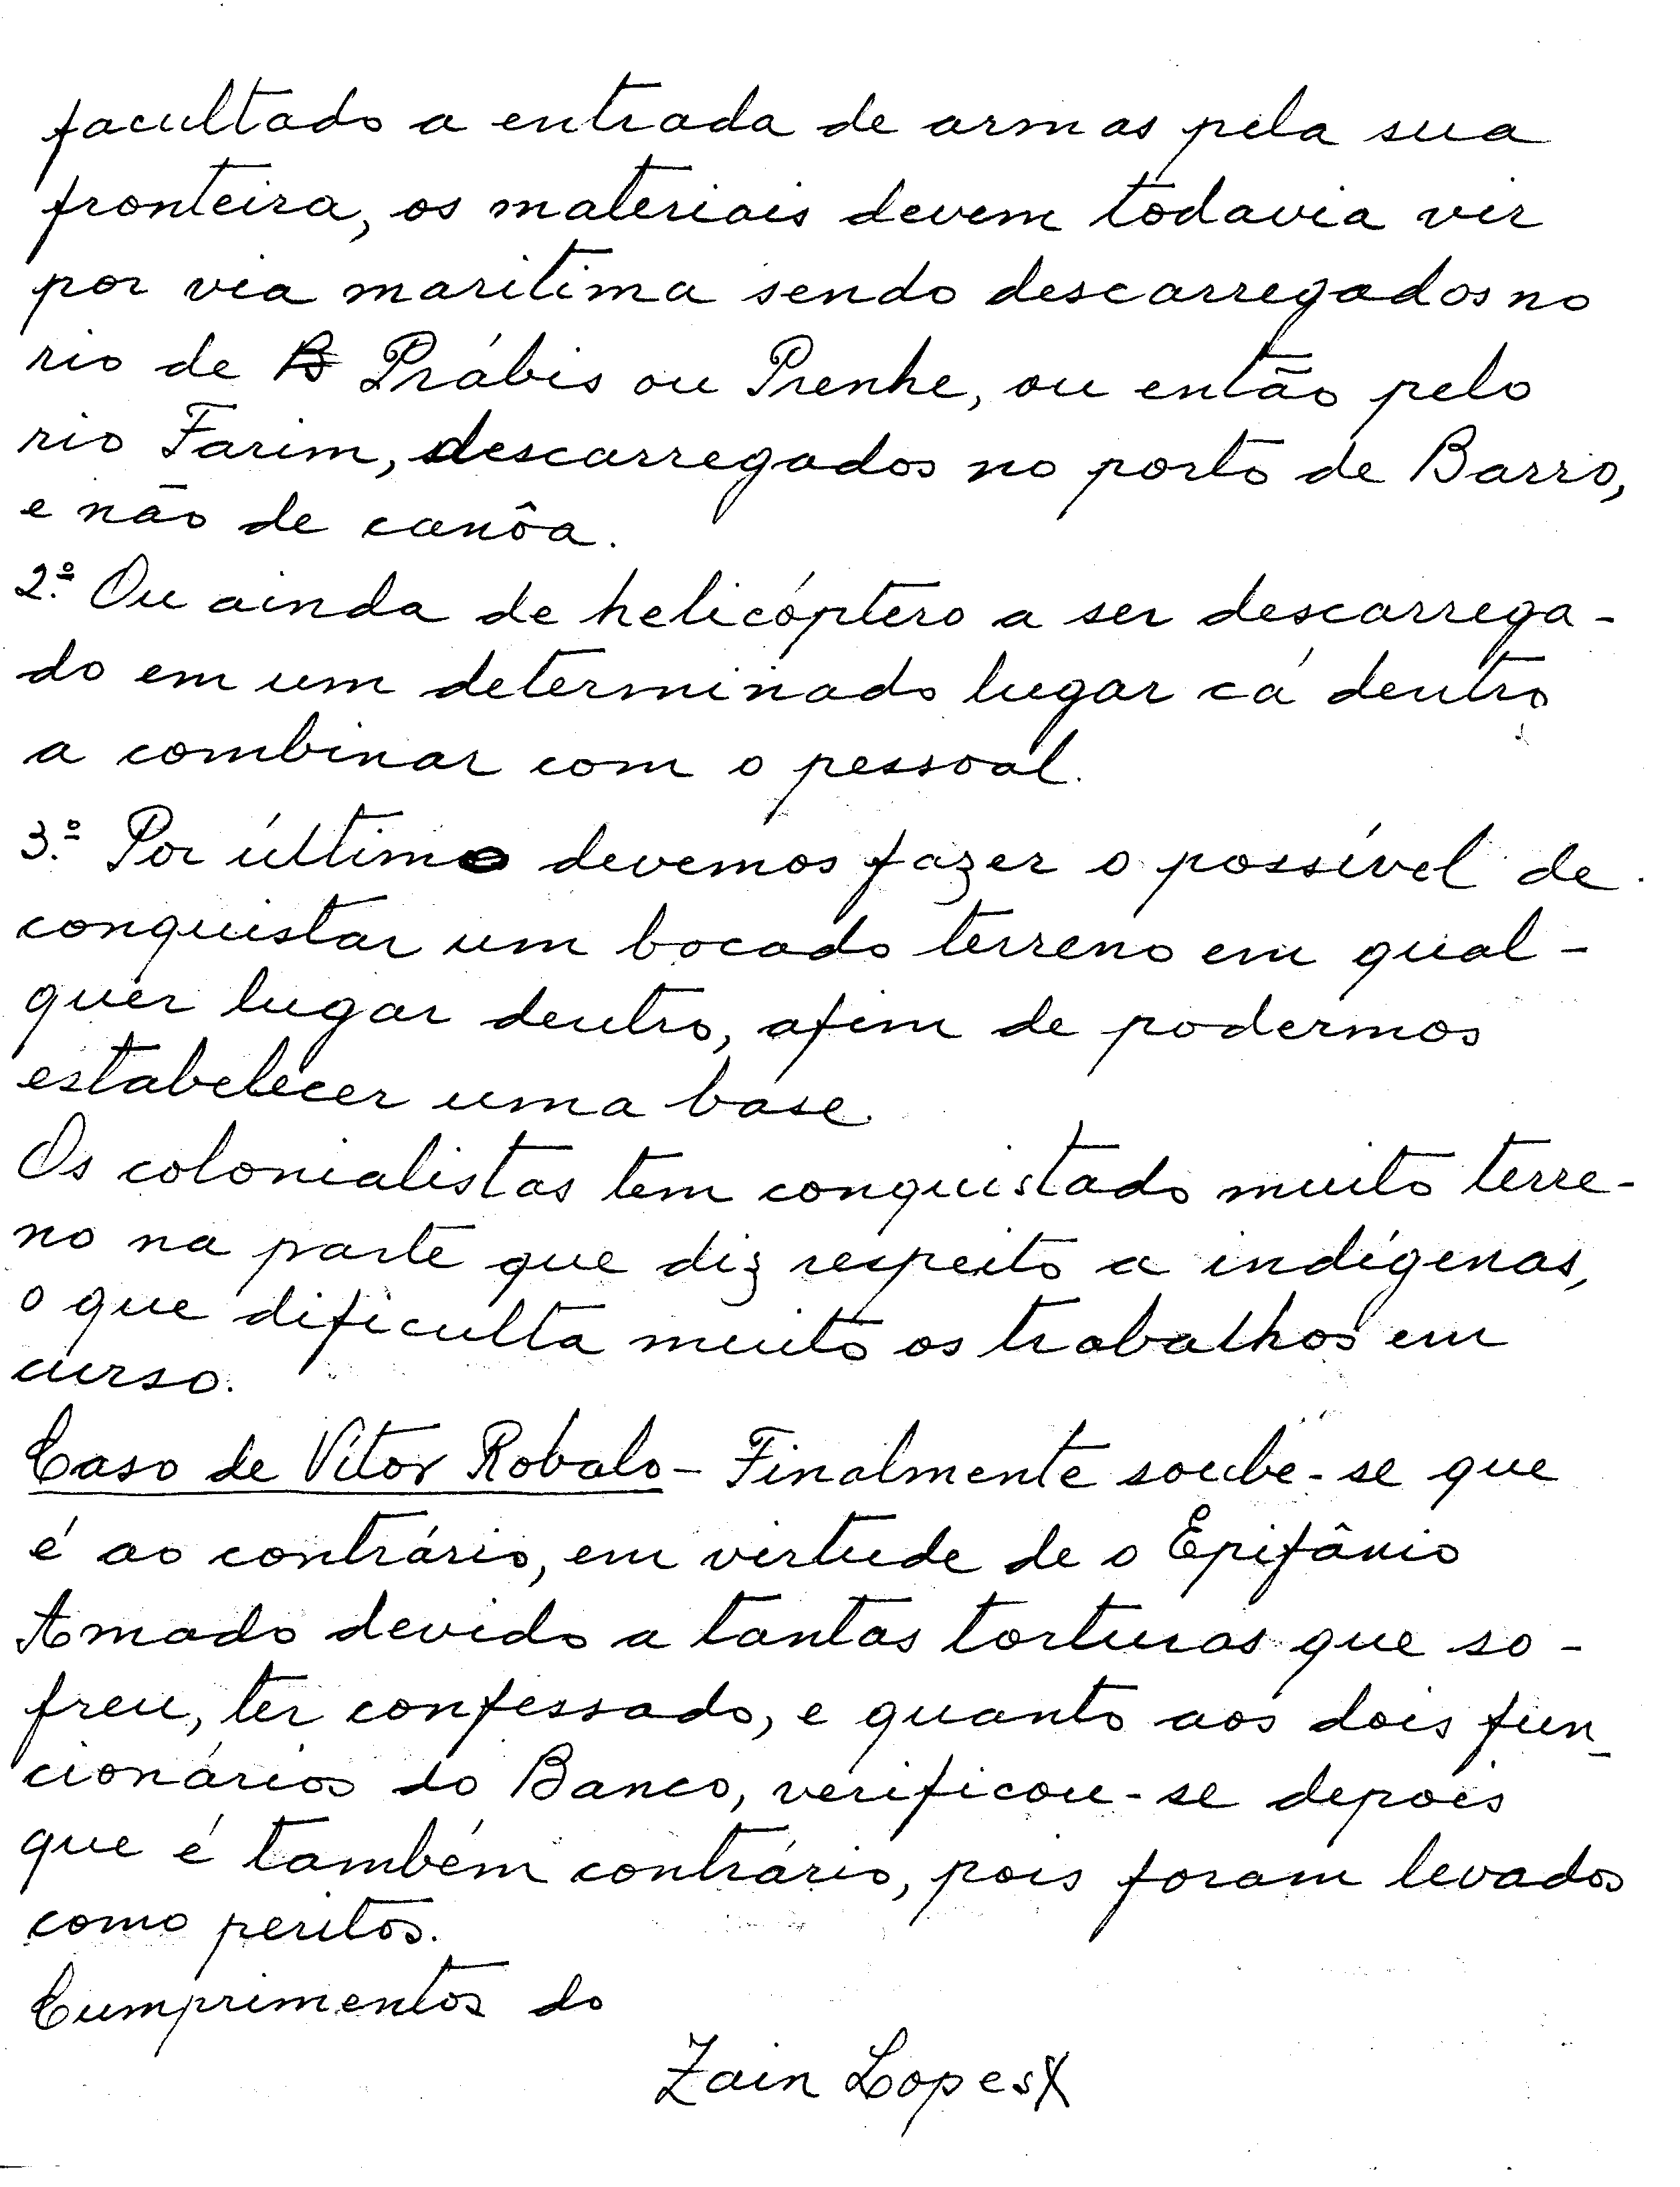 facultado a entrada de armas pela sua
fronteira, os materiais devem todavia vir
por via maritima sendo descarregados no
rio de B Prábis ou Prenhe, ou então pelo
rio Farim, descarregados no porto de Barro,
e não de canôa.
2.º Ou ainda de helicóptero a ser descarrega-
do em um determinado lugar cá dentro
a combinar com o pessoal.
3.º Por último devemos fazer o possível de
conquistar um bocado terreno em qual-
quer lugar dentro, afim de podermos
estabelecer uma base.
Os colonialistas tem conquistado muito terre-
no na parte que diz respeito a indígenas,
o que dificulta muito os trabalhos em
curso.
Caso de Vitor Robalo - Finalmente soube-se que
é ao contrário, em virtude de o Epifânio
Amado devido a tantas torturas que so-
freu, ter confessado, e quanto aos dois fun-
cionários do Banco, verificou-se depois
que é também contrário, pois foram levados
como peritos.
Cumprimentos do
Zain Lopes